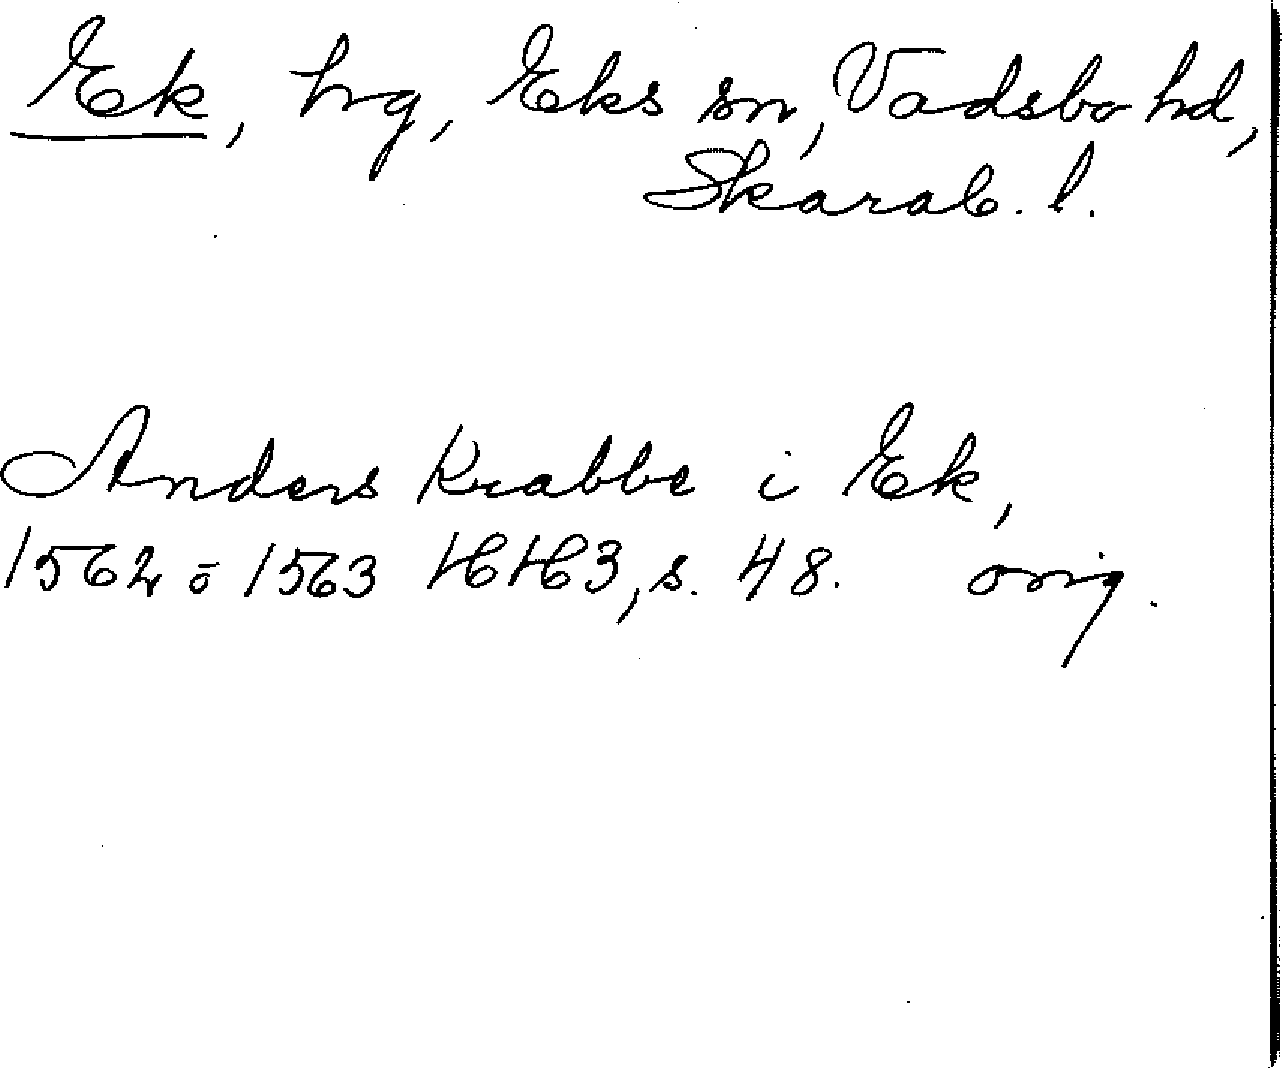 Ek, hrg, Eks sn, Vadsbo hd,
Skarab. l.
Anders Krabbe i Ek,
1562 o 1563 HH3, s. 48. orig.